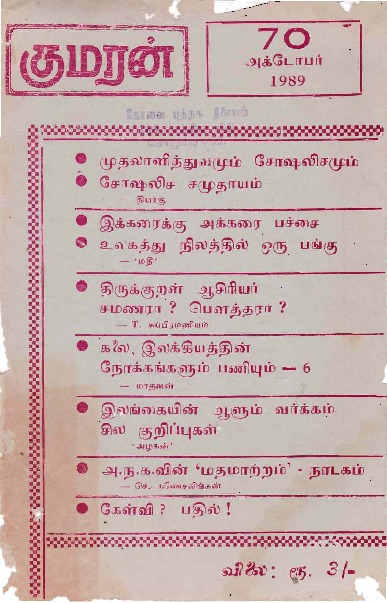 குமரன்
70
அக்டோபர்
1989
முதலாளித்துவமும் சோஷலிசமும்
சோஷலிச சமுதாயம்
இக்கரைக்கு அக்கரை பச்சை
உலகத்து நிலத்தில் ஒரு பங்கு
— 'மதி'
திருக்குறள் ஆசிரியர்
சமணரா ? பௌத்தரா ?
— T. சுப்பிரமணியம்
கலை, இலக்கியத்தின்
நோக்கங்களும் பணியும் — 6
— மாதவன்
இலங்கையின் ஆளும் வர்க்கம்
சில குறிப்புகள்
— 'அழகன்'
அ.ந.க.வின் 'மதமாற்றம்' - நாடகம்
— செ. கணேசலிங்கன்
கேள்வி ? பதில் !
விலை: ரூ. 3/-